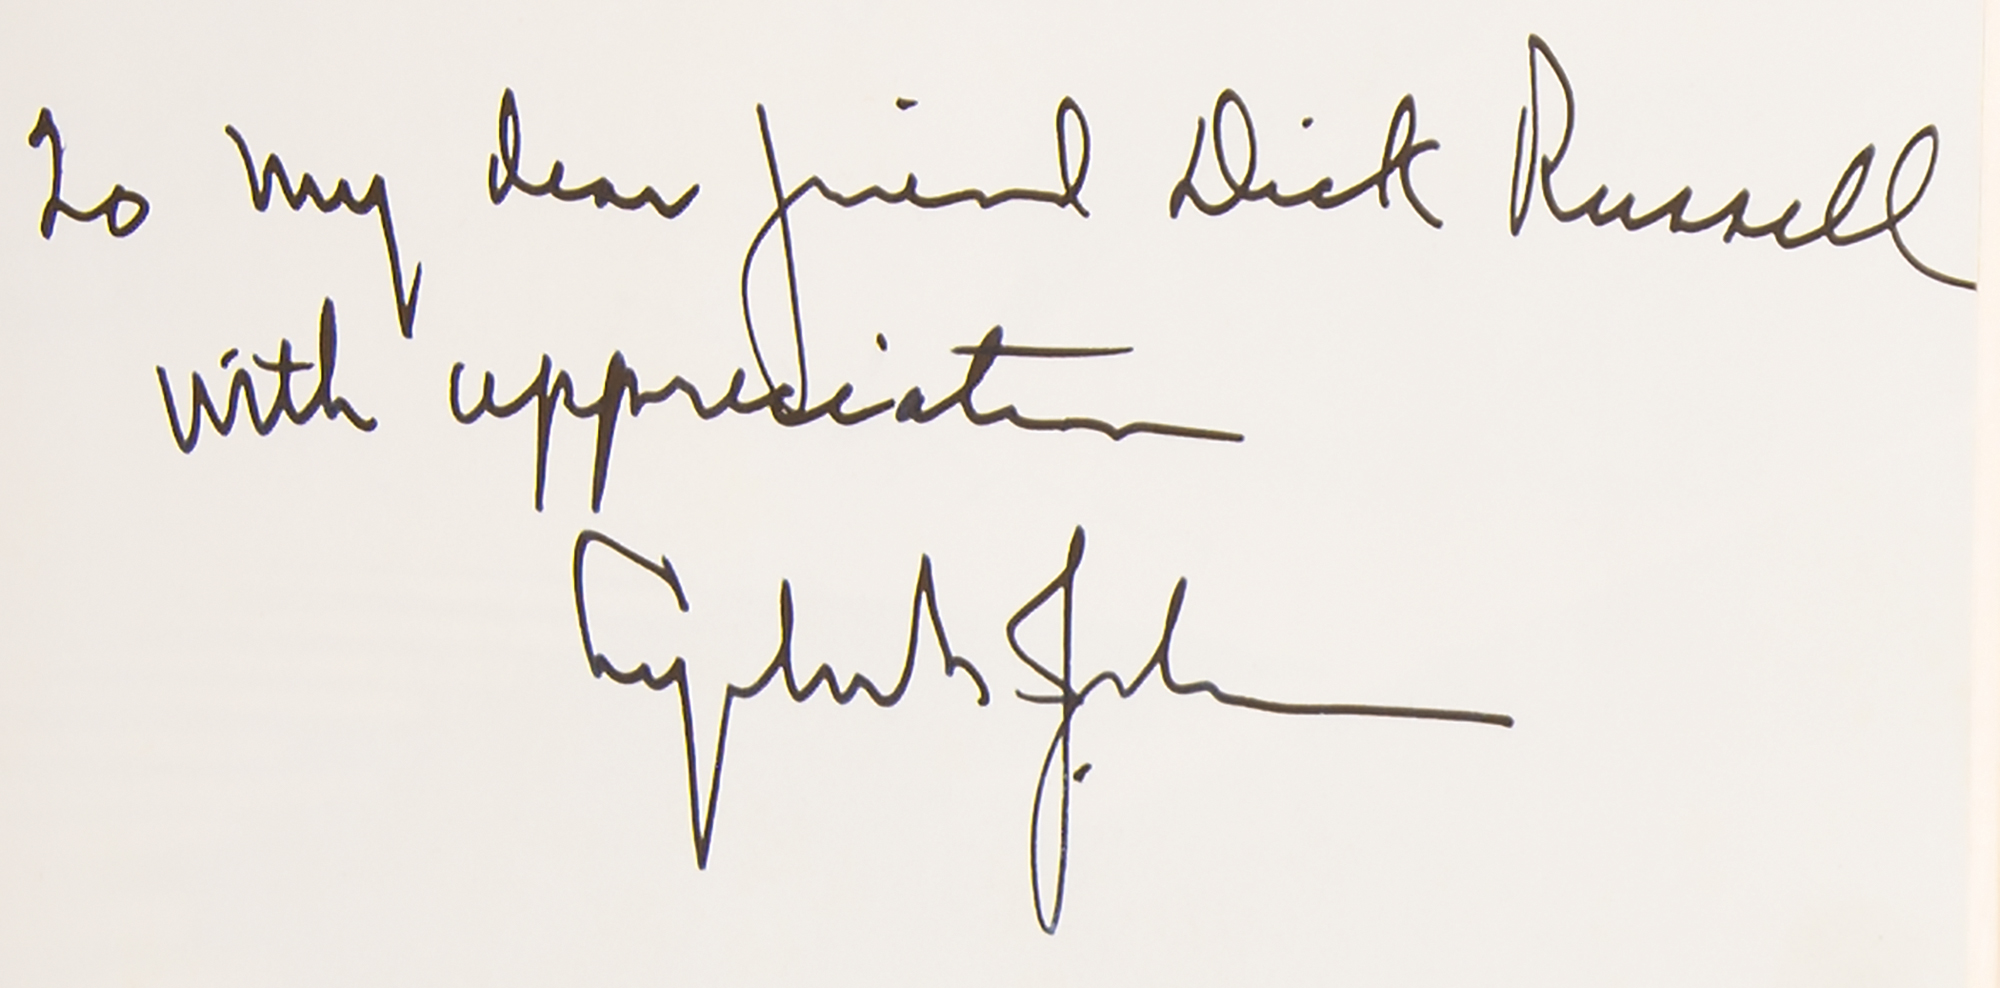 To my dear friend Dick Russell
with appreciation
Lyndon B. Johnson